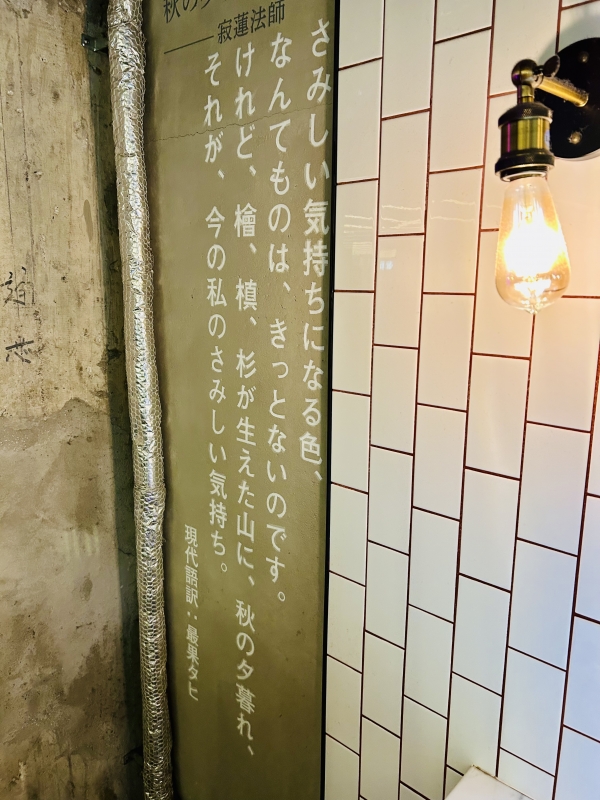 さみしい気持ちになる色、
なんてものは、きっとないのです。
けれど、檜、槙、杉が生えた山に、秋の夕暮れ、
それが、今の私のさみしい気持ち。
現代語訳：最果タヒ
秋の夕
――寂蓮法師